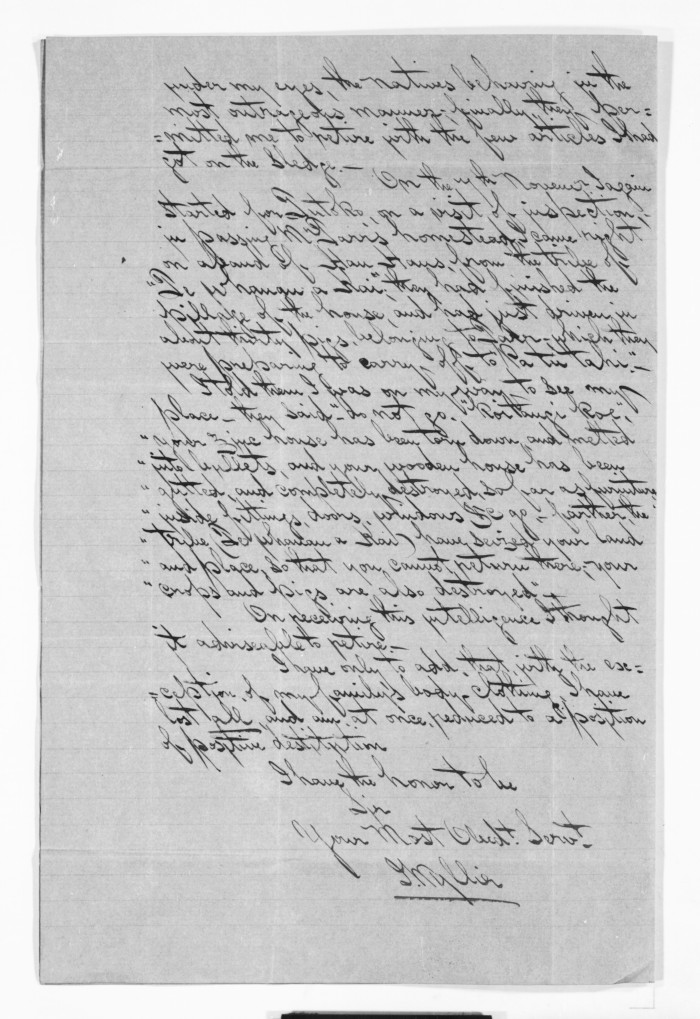 under my eyes, the natives behaving in the
most outrageous manner, finally they per=
=mitted me to retire with the few articles I had
got on the sledge. —
On the 11th November I again
started for on a visit of inspection,
in passing homestead I came right
on a band of Hau Haus, from the tribe of
they had finished the
pillage of the house, and had just driven in
about thirty pigs belonging to which they
were preparing to carry off to
I told them I was on my way to see my
place — they said — do not go.
" your zinc house has been torn down, and melted
" into bullets, and your wooden house has been
" gutted, and completely destroyed so far as furniture
" inside fittings, doors, windows &c go, further the
" tribe have seized your land
" and place, so that you cannot return there, your
" crops and pigs are also destroyed" —
On receiving this intelligence I thought
it adviseable to retire. —
I have only to add that, with the ex=
=ception of my family's body clothing I have
lost all, and am at once reduced to a position
of positive destitution
I have the honor to be
Sir
Your Most Obedt. Servt.